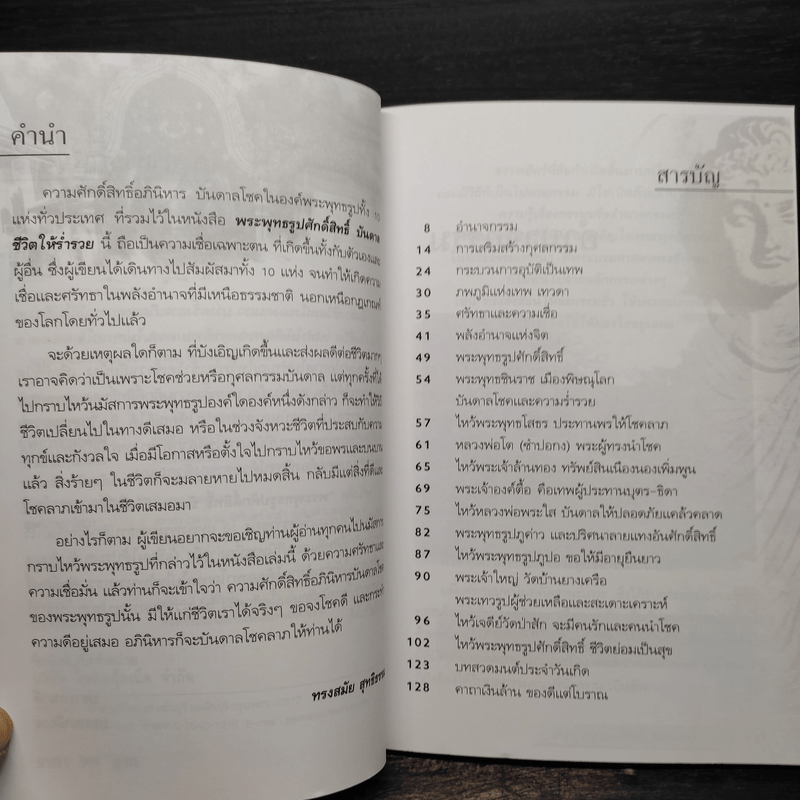 คำนำ
ความศักดิ์สิทธิ์อภินิหาร บันดาลโชคในองค์พระพุทธรูปทั้ง 10
แห่งทั่วประเทศ ที่รวมไว้ในหนังสือ พระพุทธรูปศักดิ์สิทธิ์ บันดาล
ชีวิตให้ร่ำรวย นี้ ถือเป็นความเชื่อเฉพาะตน ที่เกิดขึ้นทั้งกับตัวเองและ
ผู้อื่น ซึ่งผู้เขียนได้เดินทางไปสัมผัสมาทั้ง 10 แห่ง จนทำให้เกิดความ
เชื่อและศรัทธาในพลังอำนาจที่มีเหนือธรรมชาติ นอกเหนือกฎเกณฑ์
ของโลกโดยทั่วไปแล้ว
จะด้วยเหตุผลใดก็ตาม ที่บังเอิญเกิดขึ้นและส่งผลดีต่อชีวิตมากๆ
เราอาจคิดว่าเป็นเพราะโชคช่วยหรือกุศลกรรมบันดาล แต่ทุกครั้งที่ได้
ไปกราบไหว้นมัสการพระพุทธรูปองค์ใดองค์หนึ่งดังกล่าว ก็จะทำให้วิถี
ชีวิตเปลี่ยนไปในทางดีเสมอ หรือในช่วงจังหวะชีวิตที่ประสบกับความ
ทุกข์และกังวลใจ เมื่อมีโอกาสหรือตั้งใจไปกราบไหว้ขอพรและบนบาน
แล้ว สิ่งร้ายๆ ในชีวิตก็จะมลายหายไปหมดสิ้น กลับมีแต่สิ่งที่ดีและ
โชคลาภเข้ามาในชีวิตเสมอมา
อย่างไรก็ตาม ผู้เขียนอยากจะขอเชิญท่านผู้อ่านทุกคนไปนมัสการ
กราบไหว้พระพุทธรูปที่กล่าวไว้ในหนังสือเล่มนี้ ด้วยความศรัทธาและ
ความเชื่อมั่น แล้วท่านก็จะเข้าใจว่า ความศักดิ์สิทธิ์อภินิหารบันดาลโชค
ของพระพุทธรูปนั้น มีให้แก่ชีวิตเราได้จริงๆ ขอจงโชคดี และกระทำ
ความดีอยู่เสมอ อภินิหารก็จะบันดาลโชคลาภให้ท่านได้
ทรงสมัย
สารบัญ
8 อำนาจกรรม
14 การเสริมสร้างกุศลกรรม
24 กระบวนการอุบัติเป็นเทพ
30 ภพภูมิแห่งเทพ เทวดา
35 ศรัทธาและความเชื่อ
41 พลังอำนาจแห่งจิต
49 พระพุทธรูปศักดิ์สิทธิ์
54 พระพุทธชินราช เมืองพิษณุโลก
บันดาลโชคและความร่ำรวย
57 ไหว้พระพุทธโสธร ประทานพรให้โชคลาภ
61 หลวงพ่อโต (ซำปอกง) พระผู้ทรงนำโชค
65 ไหว้พระเจ้าล้านทอง ทรัพย์สินเนืองนองเพิ่มพูน
69 พระเจ้าองค์ตื้อ คือเทพผู้ประทานบุตร-ธิดา
75 ไหว้หลวงพ่อพระใส บันดาลให้ปลอดภัยแคล้วคลาด
82 พระพุทธรูปภูค่าว และปริศนาลายแทงอันศักดิ์สิทธิ์
87 ไหว้พระพุทธรูปภูปอ ขอให้มีอายุยืนยาว
90 พระเจ้าใหญ่ วัดบ้านยางเครือ
พระเทวรูปผู้ช่วยเหลือและสะเดาะเคราะห์
96 ไหว้เจดีย์วัดป่าสัก จะมีคนรักและคนนำโชค
102 ไหว้พระพุทธรูปศักดิ์สิทธิ์ ชีวิตย่อมเป็นสุข
123 บทสวดมนต์ประจำวันเกิด
128 คาถาเงินล้าน ของดีแต่โบราณ